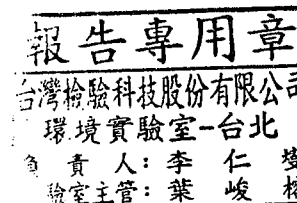 報告專用章
台灣檢驗科技股份有限公司
環境實驗室-台北
負責人：李仁
驗室主管：葉峻